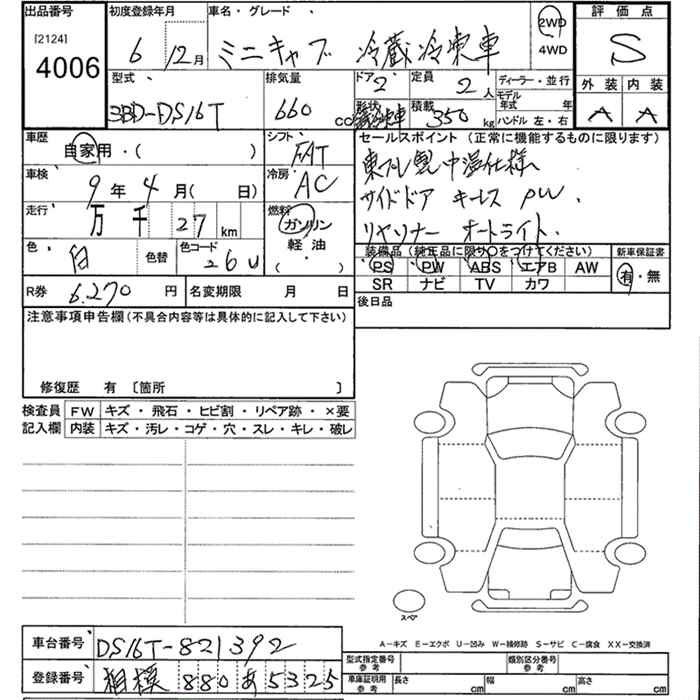 出品番号 初度登録年月 車名・グレード 評価点
[2124] 4006 6 12月 ミニキャブ 冷蔵冷凍車 2WD 4WD S
型式 排気量 ドア 定員 ディーラー・並行 外装 内装
3BD-DS16T 660 cc 2 2人 モデル年式 年 A A
形状 冷蔵冷凍車 積載 350 kg ハンドル 左・右
車歴 自家用・( ) シフト FAT セールスポイント(正常に機能するものに限ります)
東プレ製中温仕様
車検 9年4月( 日) 冷房 AC サイドドア キーレス PW.
走行 万 千 27 km 燃料 ガソリン 軽油 ( ) リヤソナー オートライト.
色 白 色替 色コード 26U 装備品(純正品に限り○をつけてください) 新車保証書
PS PW ABS エアB AW 有・無
R券 6,270 円 名変期限 月 日 SR ナビ TV カワ
注意事項申告欄(不具合内容等は具体的に記入して下さい) 後日品
修復歴 有 [箇所 ]
検査員 FW キズ・飛石・ヒビ割・リペア跡・×要
記入欄 内装 キズ・汚レ・コゲ・穴・スレ・キレ・破レ
スペア
A-キズ E-エクボ U-凹み W-補修跡 S-サビ C-腐食 XX-交換済
車台番号 DS16T-821392 型式指定番号 参考 類別区分番号 参考
登録番号 相模 880 あ 5325 車庫証明用 参考 長さ cm 幅 cm 高さ cm